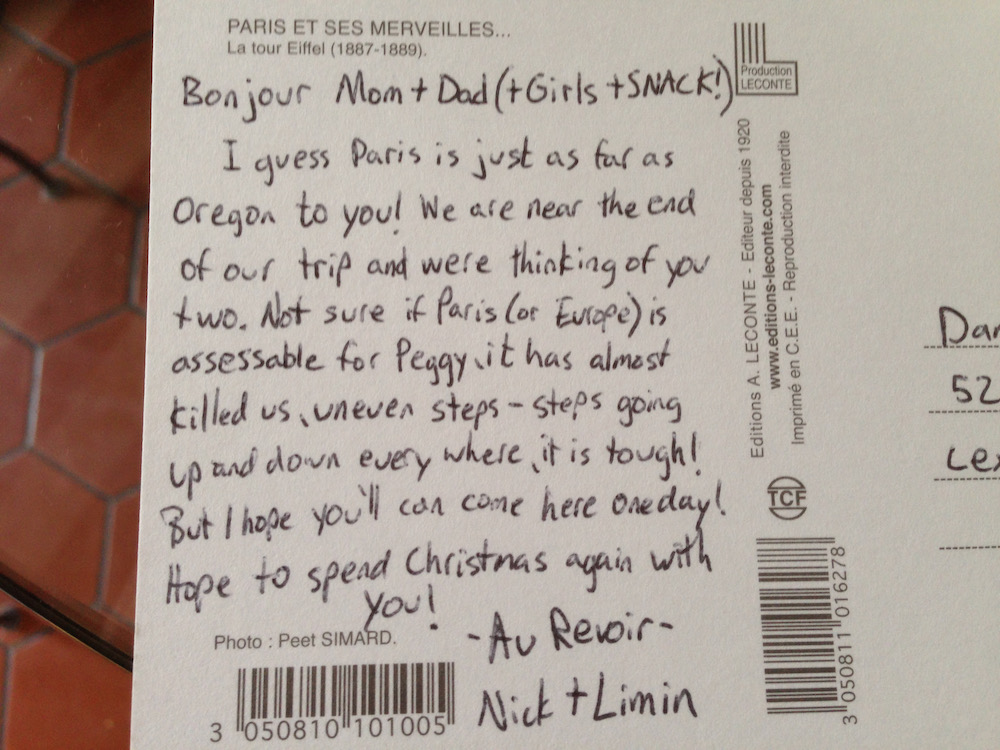 PARIS ET SES MERVEILLES...
La tour Eiffel (1887-1889).
Bonjour Mom + Dad (+ Girls + SNACK!)
I guess Paris is just as far as
Oregon to you! We are near the end
of our trip and were thinking of you
two. Not sure if Paris (or Europe) is
assessable for Peggy, it has almost
killed us, uneven steps - steps going
up and down every where, it is tough!
But I hope you'll can come here one day!
Hope to spend Christmas again with
you!
- Au Revoir -
Nick + Limin
Photo : Peet SIMARD.
3 050810 101005
Production
LECONTE
Editions A. LECONTE - Editeur depuis 1920
www.editions-leconte.com
Imprimé en C.E.E. - Reproduction interdite
TCF
3 050811 016278
Dan
52
Lex